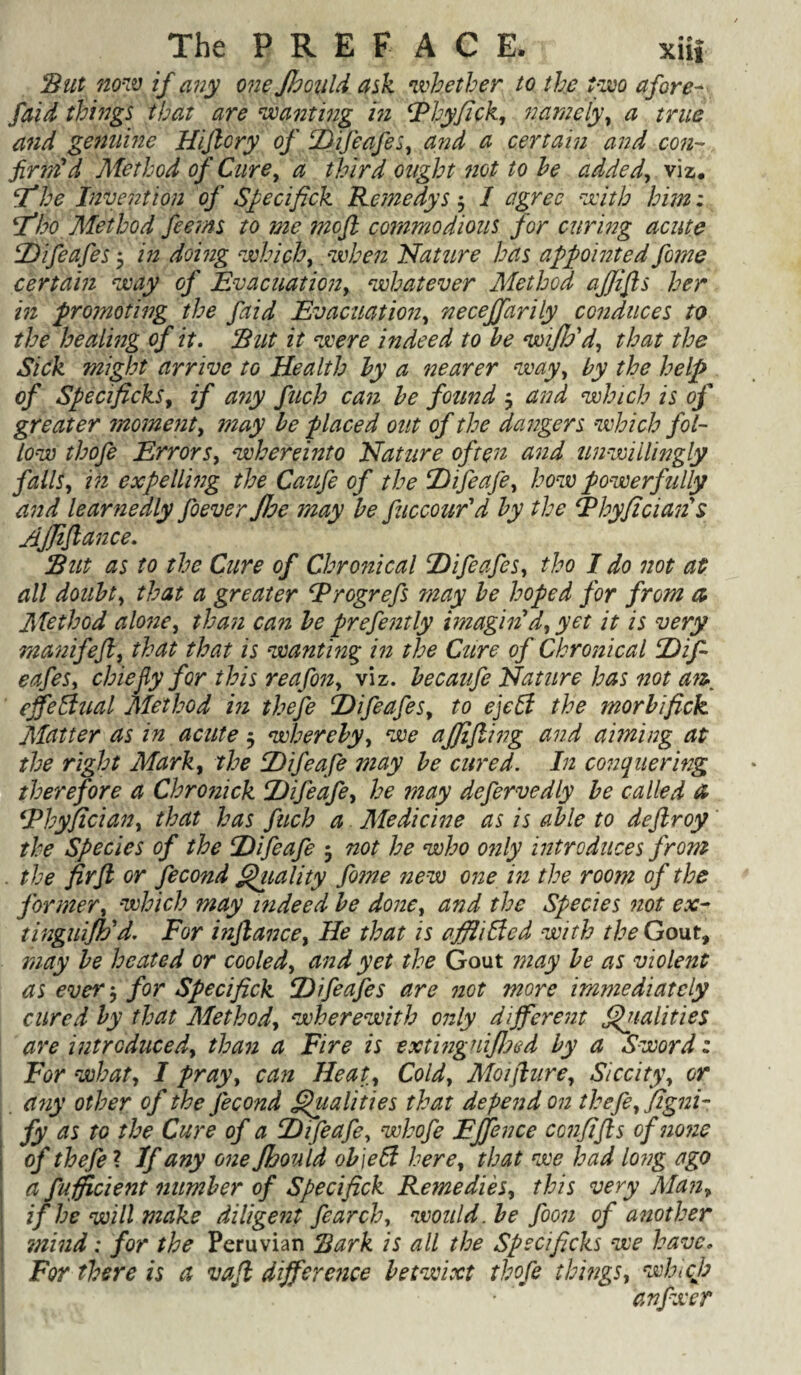 The PREFACE. xiii
But now if any one ſhould ask whether to the two afore-
ſaid things that are wanting in Phyſick, namely, a true
and genuine Hiſtory of Diſeaſes, and a certain and con-
firm'd Method of Cure, a third ought not to be added, viz.
The Invention of Specifick Remedys; I agree with him:
Tho Method ſeems to me moſt commodious for curing acute
Diſeaſes; in doing which, when Nature has appointed ſome
certain way of Evacuation, whatever Method aſſiſts her
in promoting the ſaid Evacuation, neceſſarily conduces to
the healing of it. But it were indeed to be wiſh'd, that the
Sick might arrive to Health by a nearer way, by the help
of Specificks, if any ſuch can be found; and which is of
greater moment, may be placed out of the dangers which fol-
low thoſe Errors, whereinto Nature often and unwillingly
falls, in expelling the Cauſe of the Diſeaſe, how powerfully
and learnedly ſoever ſhe may be ſuccour'd by the Phyſician's
Aſſiſtance.
But as to the Cure of Chronical Diſeaſes, tho I do not at
all doubt, that a greater Progreſs may be hoped for from a
Method alone, than can be preſently imagin'd, yet it is very
manifeſt, that that is wanting in the Cure of Chronical Diſ-
eaſes, chiefly for this reaſon, viz. becauſe Nature has not an
effectual Method in theſe Diſeaſes, to eject the morbifick
Matter as in acute; whereby, we aſſiſting and aiming at
the right Mark, the Diſeaſe may be cured. In conquering
therefore a Chronick Diſeaſe, he may deſervedly be called a
Phyſician, that has ſuch a Medicine as is able to deſtroy
the Species of the Diſeaſe; not he who only introduces from
the firſt or ſecond Quality ſome new one in the room of the
former, which may indeed be done, and the Species not ex-
tinguiſh'd. For inſtance, He that is afflicted with the Gout,
may be heated or cooled, and yet the Gout may be as violent
as ever; for Specifick Diſeaſes are not more immediately
cured by that Method, wherewith only different Qualities
are introduced, than a Fire is extinguiſhed by a Sword:
For what, I pray, can Heat, Cold, Moiſture, Siccity, or
any other of the ſecond Qualities that depend on theſe, ſigni-
fy as to the Cure of a Diſeaſe, whoſe Eſſence conſiſts of none
of theſe? If any one ſhould object here, that we had long ago
a ſufficient number of Specifick Remedies, this very Man,
if he will make diligent ſearch, would be ſoon of another
mind: for the Peruvian Bark is all the Specificks we have.
For there is a vaſt difference betwixt thoſe things, which
anſwer